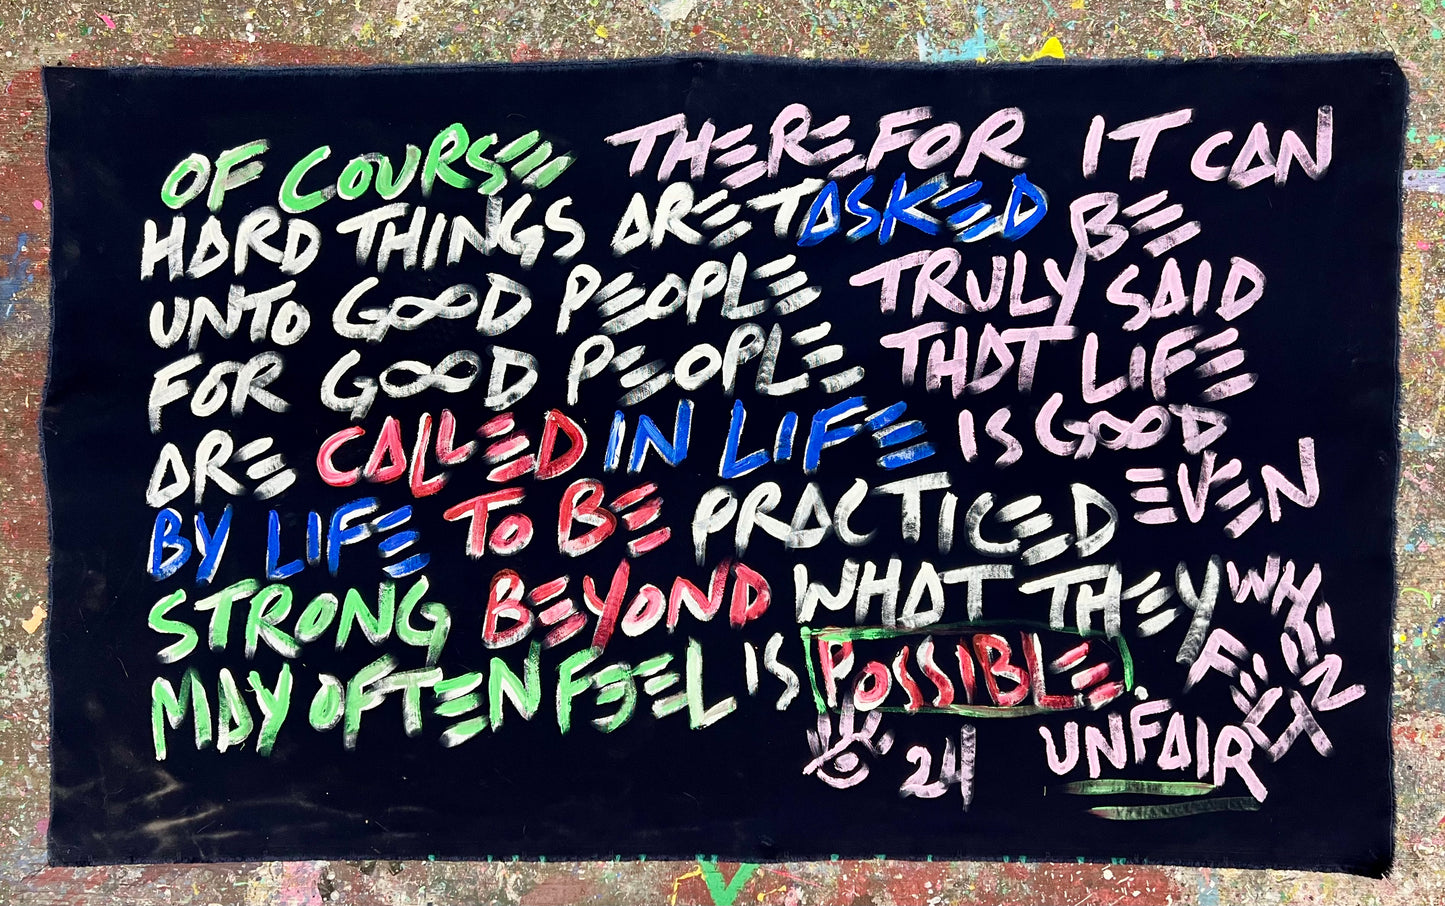 OF COURSE
HARD THINGS ARE TASKED
UNTO GOOD PEOPLE
FOR GOOD PEOPLE
ARE CALLED IN LIFE
BY LIFE TO BE PRACTICED
STRONG BEYOND WHAT THEY
MAY OFTEN FEEL IS POSSIBLE.
THEREFOR IT CAN
BE
TRULY SAID
THAT LIFE
IS GOOD
EVEN
WHEN
IT
FEELS
UNFAIR
24